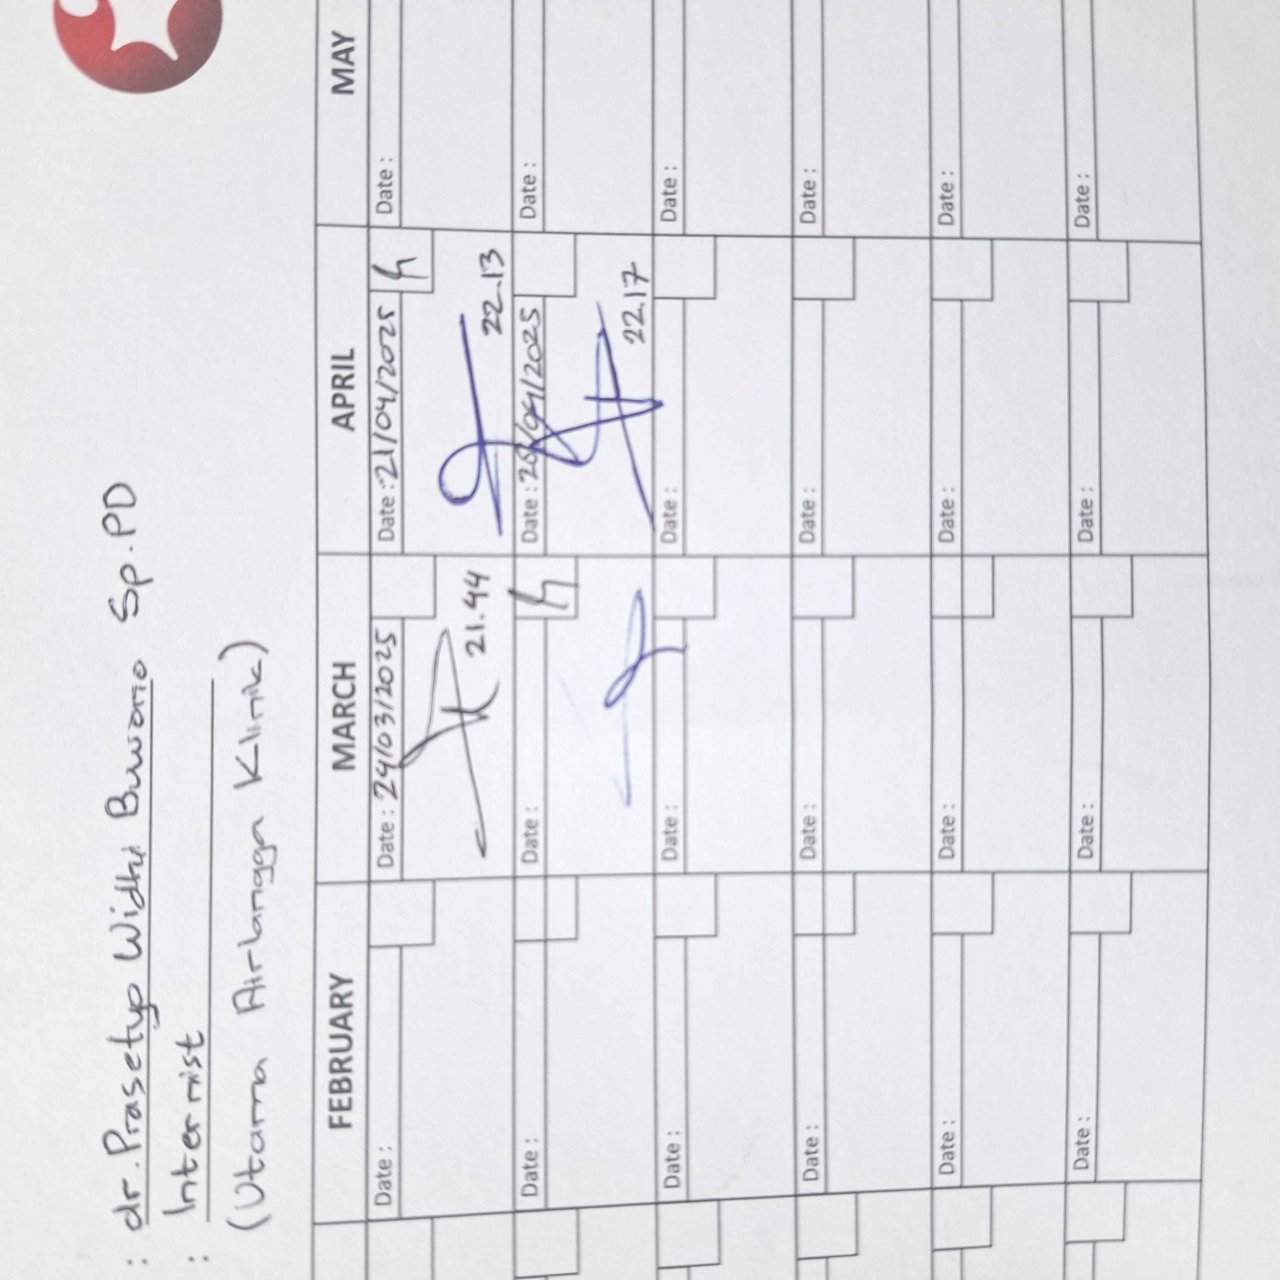 : dr. Prasetyo Widhi Buwono Sp.PD
: Internist
(Utama Airlangga Klinik)
FEBRUARY MARCH APRIL MAY
Date : Date : 24/03/2025 Date : 21/04/2025 Date :
21.44 22.13
Date : Date : Date : 28/04/2025 Date :
22.17
Date : Date : Date : Date :
Date : Date : Date : Date :
Date : Date : Date : Date :
Date : Date : Date : Date :